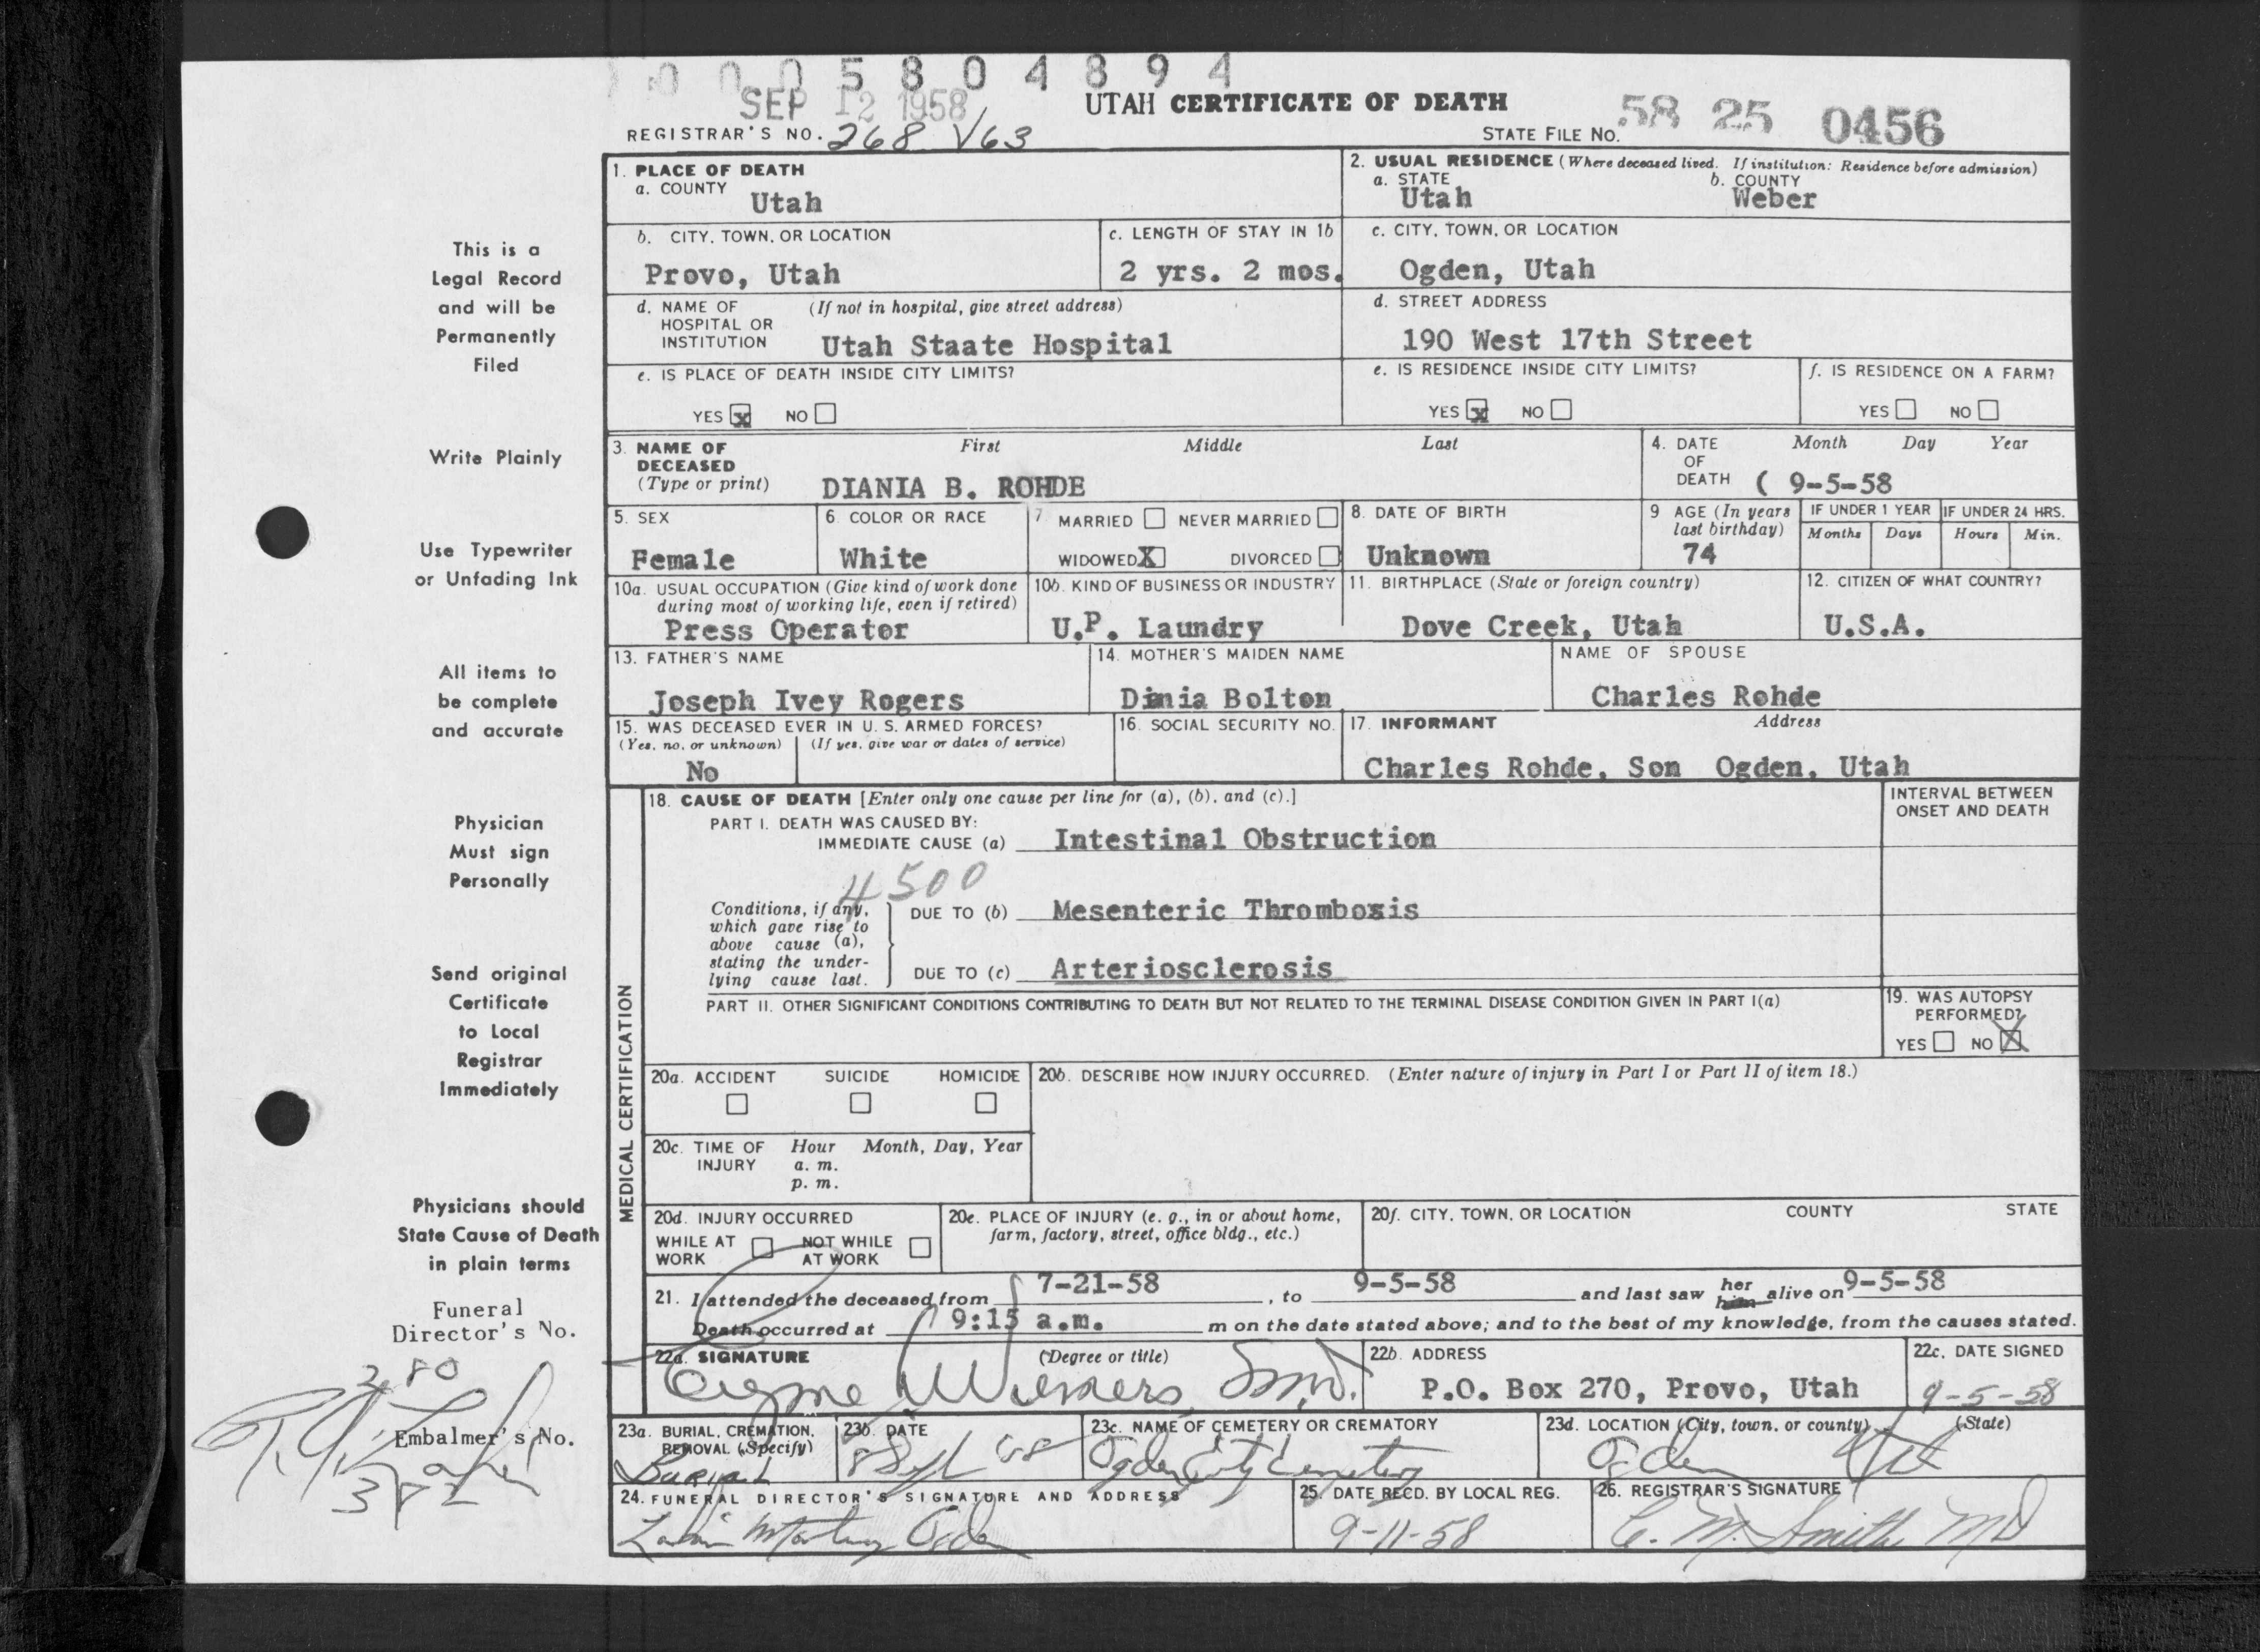 0 0 0 5 8 0 4 8 9 4
SEP 12 1958
UTAH CERTIFICATE OF DEATH
58 25 0456
REGISTRAR'S NO. 268 V63
STATE FILE NO.
1. PLACE OF DEATH
a. COUNTY
Utah
2. USUAL RESIDENCE (Where deceased lived. If institution: Residence before admission)
a. STATE b. COUNTY
Utah Weber
b. CITY, TOWN, OR LOCATION
Provo, Utah
c. LENGTH OF STAY IN 1b
2 yrs. 2 mos.
c. CITY, TOWN, OR LOCATION
Ogden, Utah
d. NAME OF HOSPITAL OR INSTITUTION (If not in hospital, give street address)
Utah Staate Hospital
d. STREET ADDRESS
190 West 17th Street
e. IS PLACE OF DEATH INSIDE CITY LIMITS?
YES x NO
e. IS RESIDENCE INSIDE CITY LIMITS?
YES x NO
f. IS RESIDENCE ON A FARM?
YES NO
3. NAME OF DECEASED (Type or print)
First Middle Last
DIANIA B. ROHDE
4. DATE OF DEATH
Month Day Year
( 9-5-58
5. SEX
Female
6. COLOR OR RACE
White
7. MARRIED NEVER MARRIED
WIDOWED X DIVORCED
8. DATE OF BIRTH
Unknown
9 AGE (In years last birthday)
74
IF UNDER 1 YEAR
Months Days
IF UNDER 24 HRS.
Hours Min.
10a. USUAL OCCUPATION (Give kind of work done during most of working life, even if retired)
Press Operator
10b. KIND OF BUSINESS OR INDUSTRY
U.P. Laundry
11. BIRTHPLACE (State or foreign country)
Dove Creek, Utah
12. CITIZEN OF WHAT COUNTRY?
U.S.A.
13. FATHER'S NAME
Joseph Ivey Rogers
14. MOTHER'S MAIDEN NAME
Dinia Bolton
NAME OF SPOUSE
Charles Rohde
15. WAS DECEASED EVER IN U. S. ARMED FORCES?
(Yes, no, or unknown) (If yes, give war or dates of service)
No
16. SOCIAL SECURITY NO.
17. INFORMANT Address
Charles Rohde, Son Ogden, Utah
MEDICAL CERTIFICATION
18. CAUSE OF DEATH [Enter only one cause per line for (a), (b), and (c).]
INTERVAL BETWEEN ONSET AND DEATH
PART I. DEATH WAS CAUSED BY:
IMMEDIATE CAUSE (a) Intestinal Obstruction
4500
Conditions, if any, which gave rise to above cause (a), stating the underlying cause last.
DUE TO (b) Mesenteric Thrombosis
DUE TO (c) Arteriosclerosis
PART II. OTHER SIGNIFICANT CONDITIONS CONTRIBUTING TO DEATH BUT NOT RELATED TO THE TERMINAL DISEASE CONDITION GIVEN IN PART I(a)
19. WAS AUTOPSY PERFORMED?
YES NO X
20a. ACCIDENT SUICIDE HOMICIDE
20b. DESCRIBE HOW INJURY OCCURRED. (Enter nature of injury in Part I or Part II of item 18.)
20c. TIME OF INJURY Hour Month, Day, Year
a. m.
p. m.
20d. INJURY OCCURRED
WHILE AT WORK NOT WHILE AT WORK
20e. PLACE OF INJURY (e. g., in or about home, farm, factory, street, office bldg., etc.)
20f. CITY, TOWN, OR LOCATION COUNTY STATE
21. I attended the deceased from 7-21-58, to 9-5-58 and last saw her him alive on 9-5-58
Death occurred at 9:15 a.m. m on the date stated above; and to the best of my knowledge, from the causes stated.
22a. SIGNATURE (Degree or title)
22b. ADDRESS
P.O. Box 270, Provo, Utah
22c. DATE SIGNED
9-5-58
23a. BURIAL, CREMATION, REMOVAL (Specify)
Burial
23b. DATE
8 Sept 58
23c. NAME OF CEMETERY OR CREMATORY
Ogden City Cemetery
23d. LOCATION (City, town, or county) (State)
Ogden Ut
24. FUNERAL DIRECTOR'S SIGNATURE AND ADDRESS
25. DATE RECD. BY LOCAL REG.
9-11-58
26. REGISTRAR'S SIGNATURE
C. M. Smith MD
This is a
Legal Record
and will be
Permanently
Filed
Write Plainly
Use Typewriter
or Unfading Ink
All items to
be complete
and accurate
Physician
Must sign
Personally
Send original
Certificate
to Local
Registrar
Immediately
Physicians should
State Cause of Death
in plain terms
Funeral
Director's No.
280
Embalmer's No.
382